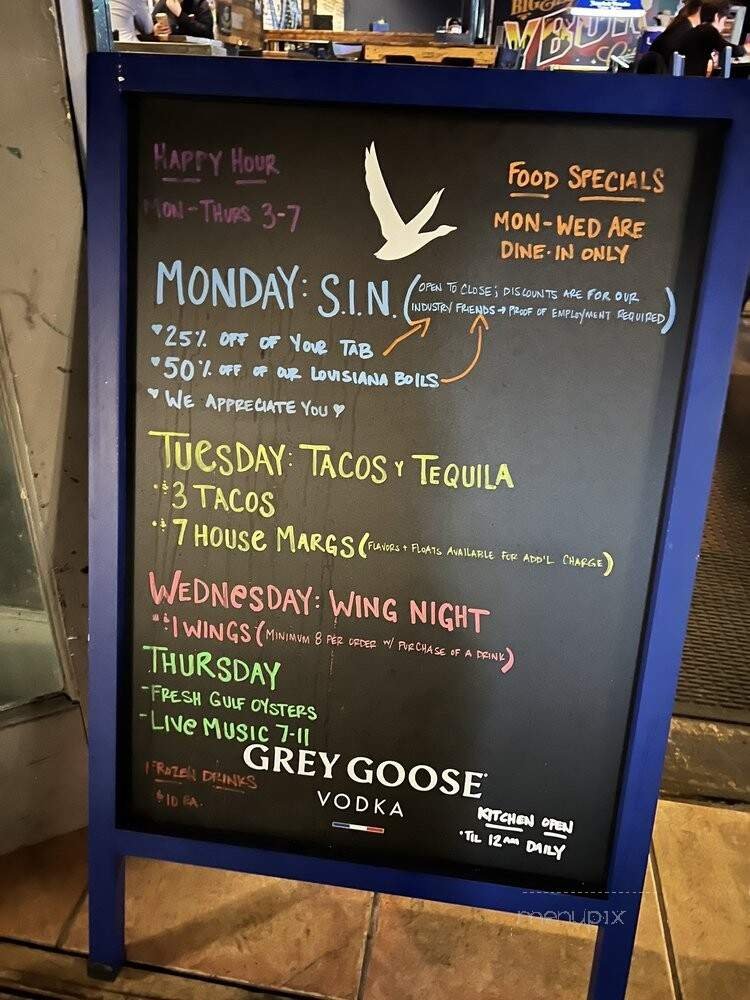 YBOR
HAPPY HOUR
MON-THURS 3-7
FOOD SPECIALS
MON-WED ARE
DINE-IN ONLY
MONDAY: S.I.N. (OPEN TO CLOSE; DISCOUNTS ARE FOR OUR
INDUSTRY FRIENDS → PROOF OF EMPLOYMENT REQUIRED)
♥25% OFF OF YOUR TAB
♥50% OFF OF OUR LOUISIANA BOILS
♥WE APPRECIATE YOU♥
TUESDAY: TACOS Y TEQUILA
$3 TACOS
$7 HOUSE MARGS (FLAVORS + FLOATS AVAILABLE FOR ADD'L CHARGE)
WEDNESDAY: WING NIGHT
$1 WINGS (MINIMUM 8 PER ORDER W/ PURCHASE OF A DRINK)
THURSDAY
-FRESH GULF OYSTERS
-LIVE MUSIC 7-11
FROZEN DRINKS
$10 EA.
GREY GOOSE
VODKA
KITCHEN OPEN
'TIL 12AM DAILY
menupix